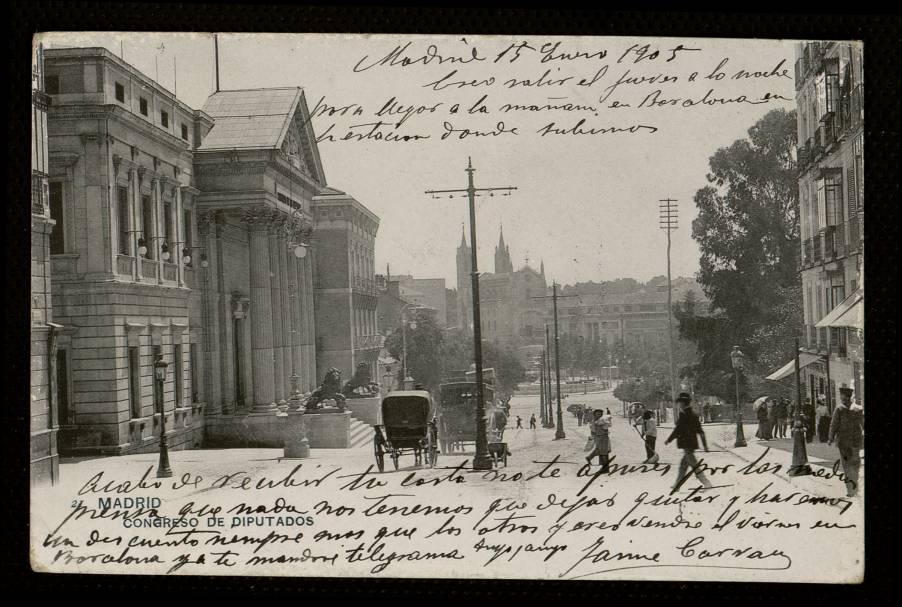 Madrid 15 Enero 1905
Creo salir el jueves a lo noche
para llegar a la mañana en Barcelona en
la estacion donde subimos
Acabo de recibir tu carta no te apures por las
piensa que nada nos tenemos que dejar quitar y haremos
un descuento siempre mas que los otros y creo vendre el viernes en
Barcelona ya te mandre telegrama
Jaime
MADRID
CONGRESO DE DIPUTADOS